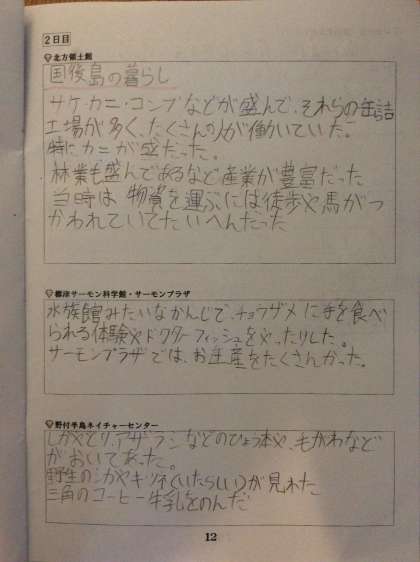 2日目
北方領土館
国後島の暮らし
サケ・カニ・コンブなどが盛んで、それらの缶詰
工場が多く、たくさんの人が働いていた。
特にカニが盛だった。
林業も盛んであるなど産業が豊富だった
当時は物資を運ぶには徒歩や馬がつ
かわれていてたいへんだった
標津サーモン科学館・サーモンプラザ
水族館みたいなかんじで、チョウザメに手を食べ
られる体験やドクターフィッシュをやったりした。
サーモンプラザでは、お土産をたくさんかった。
野付半島ネイチャーセンター
しかやとり、アザラシなどのひょう本や、もがわなど
がおいてあった。
野生のシカやキツネ(いたらしい)が見れた
三角のコーヒー牛乳をのんだ
12